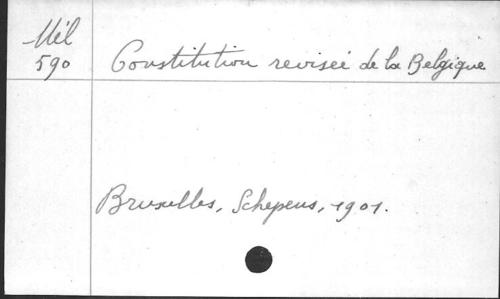 Mél
590
Constitution revisée de la Belgique
Bruxelles, Schepens, 1901.